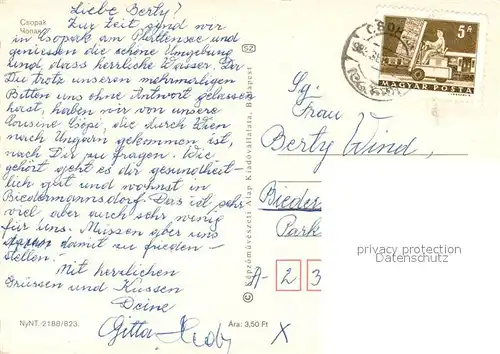 Csopak
Чопак
Liebe Berty!
Zur Zeit sind wir
in Csopak am Plattensee und
geniessen die schöne Umgebung
und dass herrliche Wasser. Da
Du trotz unseren mehrmaligen
Bitten uns ohne Antwort gelassen
hast, haben wir von unsere
Cousine Csöpi, die durch Wien
nach Ungarn gekommen ist,
nach Dir zu fragen. Wie
gehört geht es dir gesundheit-
lich gut und wohnst in
Biedermannsdorf. Das ist sehr
viel, aber auch sehr wenig
für uns. Müssen aber uns
damit zu frieden-
stellen!
Mit herzlichen
Grüssen und Küssen
Deine
Gitta
NyNT. 2188/823.
Ára: 3,50 Ft
SZ
© Képzőművészeti Alap Kiadóvállalata, Budapest
5 Ft
MAGYAR POSTA
Sg.
Frau
Berty Wind,
Bieder
Park
A- 2 3
X
privacy protection
Datenschutz